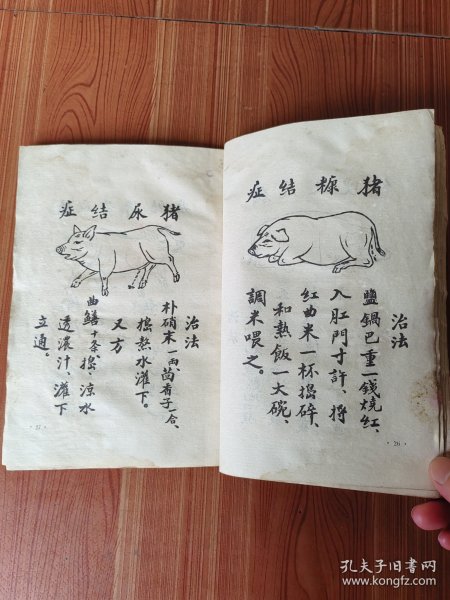 猪糠结症
治法
鹽鍋巴重一錢燒紅、
入肛門寸許、將
红曲米一杯搗碎、
和熱飯一大碗、
調米喂之。
·26·
猪尿结症
治法
朴硝末一兩、茴香子一合、
搗熬水灌下。
又方
曲鱔十条、搗、涼水
透濃汁、灌下
立通。
·27·
孔夫子旧书网
www.kongfz.com